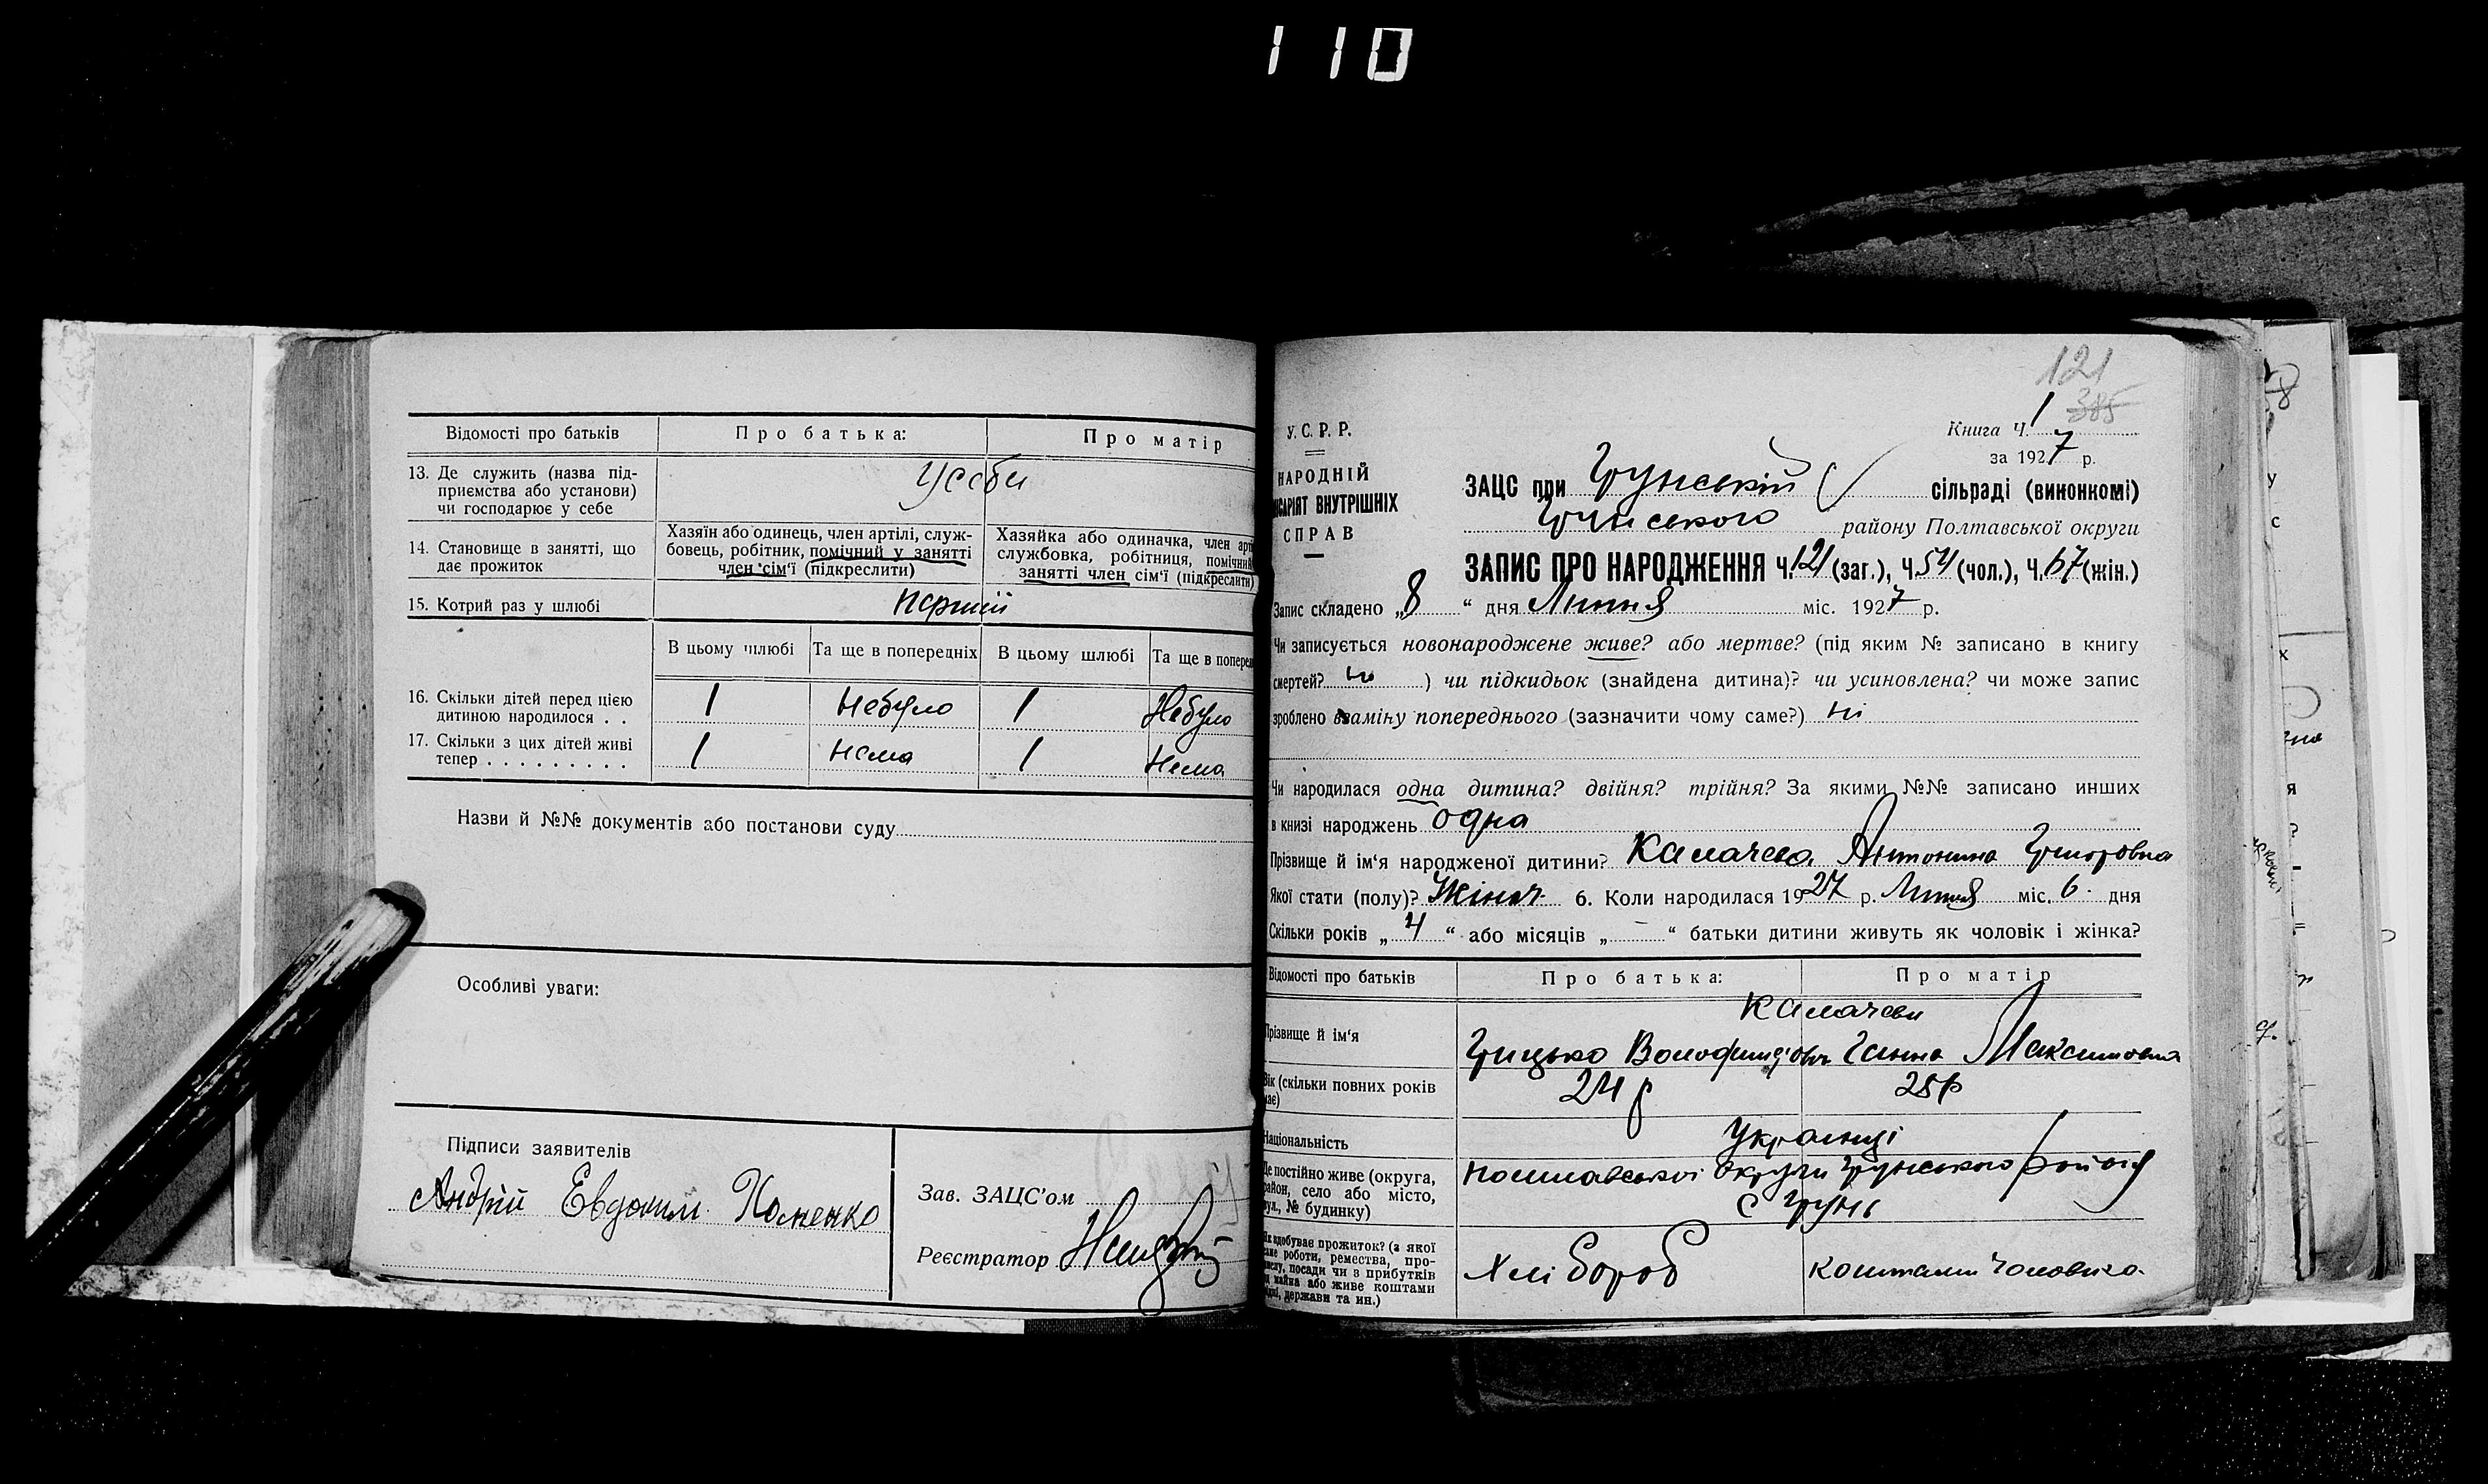 110
Відомості про батьків
Про батька:
Про матір
13. Де служить (назва під-
приємства або установи)
чи господарює у себе
Усєби
14. Становище в занятті, що
дає прожиток
Хазяїн або одинець, член артілі, служ-
бовець, робітник, помічний у занятті
член сім'ї (підкреслити)
Хазяйка або одиначка, член арт
службовка, робітниця, помічний
занятті член сім'ї (підкреслити)
15. Котрий раз у шлюбі
перший
В цьому шлюбі
Та ще в попередніх
В цьому шлюбі
Та ще в поперед
16. Скільки дітей перед цією
дитиною народилося . .
1 небуло 1 Небуло
17. Скільки з цих дітей живі
тепер . . . . . . . . .
1 нема 1 Нема
Назви й №№ документів або постанови суду
Особливі уваги:
Підписи заявителів
Андрій Евдоким.
Зав. ЗАЦС'ом
Реєстратор
121
385
Книга Ч. 1
за 1927 р.
У. С. Р. Р.
НАРОДНІЙ
ІСАРІЯТ ВНУТРІШНІХ
СПРАВ
ЗАЦС при Грунській сільраді (виконкомі)
Грунського району Полтавської округи
ЗАПИС ПРО НАРОДЖЕННЯ Ч. 121 (заг.), Ч. 54 (чол.), Ч. 67 (жін.)
Запис складено „8" дня Липня міс. 1927 р.
Чи записується новонароджене живе? або мертве? (під яким № записано в книгу
смертей? ні ) чи підкидьок (знайдена дитина)? чи усиновлена? чи може запис
зроблено взаміну попереднього (зазначити чому саме?) ні
Чи народилася одна дитина? двійня? трійня? За якими №№ записано инших
в книзі народжень одна
Прізвище й ім'я народженої дитини? Калачева Антонина Григоровна
Якої стати (полу)? Жіноч. 6. Коли народилася 1927 р. Липня міс. 6. дня
Скільки років „4" або місяців „–" батьки дитини живуть як чоловік і жінка?
Відомості про батьків
Про батька:
Про матір
Калачеви
Прізвище й ім'я
Грицько Володимирович Ганна Максимовна
Вік (скільки повних років
має)
24 р
25 р
Національність
Українці
Де постійно живе (округа,
район, село або місто,
вул., № будинку)
Полтавської округи Грунського району
с Грунь
Як здобуває прожиток? (з якої
саме роботи, ремества, про-
мислу, посади чи з прибутків
від майна або живе коштами
рідні, держави та ин.)
Хлібороб
коштами чоловіка